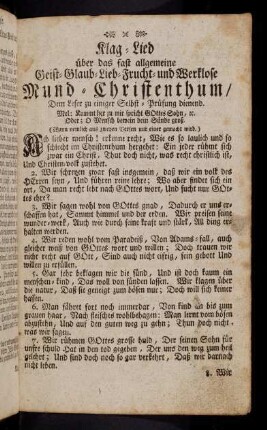 Klag-Lied
über das fast allgemeine
Geist-Glaub-Lieb-Frucht-und Werklose
Mund-Christenthum/
Dem Leser zu einiger Selbst-Prüfung dienend.
Mel: Kommt her zu mir spricht GOttes Sohn, ꝛc.
Oder: O Mensch bewein dein Sünde groß.
(Wann nemlich aus zweyen Versen nur einer gemacht wird.)
ACh lieber mensch! erkenne recht, Wie es so laulich und so
schlecht im Christenthum hergehet: Ein jeder rühmt sich
zwar ein Christ, That doch nicht, was recht christlich ist,
Und Christen-volk zustehet.
2. Wir schreyen zwar fast ingemein, daß wir ein volk des
HErren seyn, Und führen reine lehr: Wo aber findet sich ein
ort, Da man recht lebt nach GOttes wort, Und sucht nur GOt-
tes ehr?
3. Wir rühmen GOttes vorsorg viel, Dadurch er uns er-
schaffen hat, Sammt himmel und der erden. Wir preisen seine
wunder-werk, Auch wie durch seine kraft und stärk, All ding er-
halten werden.
4. Wir reden wohl vom Paradeis, Von Adams-fall, auch
gleicher weis von GOttes wort und willen; Doch trauen wir
nicht recht auf GOtt, Sind auch nicht eifrig, sein gebott Und
willen zu erfüllen.
5. Gar sehr beklagen wir die sünd, Und ist doch kaum ein
menschen-kind, Das woll von sünden lassen. Wir klagen über
die natur, Daß sie geneigt zum bösen nur; Doch will sich keiner
hassen.
6. Man fährt fort noch immerdar, Von kind an bis zum
grauen haar, Nach fleisches wohlbehagen: Man lernt vom bösen
abzustehn, Und auf den guten weg zu gehn; Thun doch nicht,
was wir sagen.
7. Wir rühmen GOttes grosse huld, Der seinen Sohn für
unsre schuld Hat in den tod gegeben, Der uns den weg zum heil
gelehret; Und sind doch noch so gar verkehrt, Daß wir darnach
nicht leben.
8. Wir